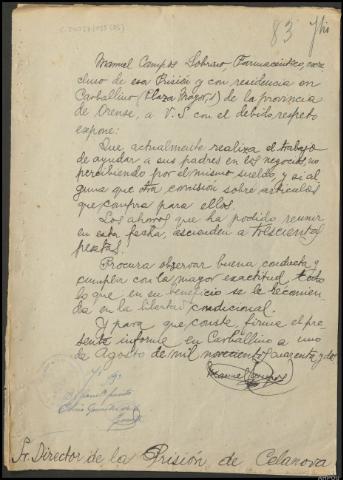 83
Manuel Campos Sobrino Farmacéutico, ex re
cluso de esa Prisión y con residencia en
Carballino (Plaza Mayor, 1) de la provincia
de Orense, a V.S con el debido respeto
expone:
Que actualmente realiza el trabajo
de ayudar a sus padres en los negocios, no
percibiendo por el mismo sueldo, y si al
guna que otra comisión sobre artículos
que compra para ellos.
Los ahorros que ha podido reunir
en esta fecha, ascienden a trescientas
pesetas.
Procura observar buena conducta y
cumplir con la mayor exactitud todo
lo que en su beneficio se le recomien
da en la libertad condicional.
Y para que conste firma el pre
sente informe en Carballino a uno
de Agosto de mil novecientos cuarenta y dos
Manuel Campos
Sr. Director de la Prisión de Celanova